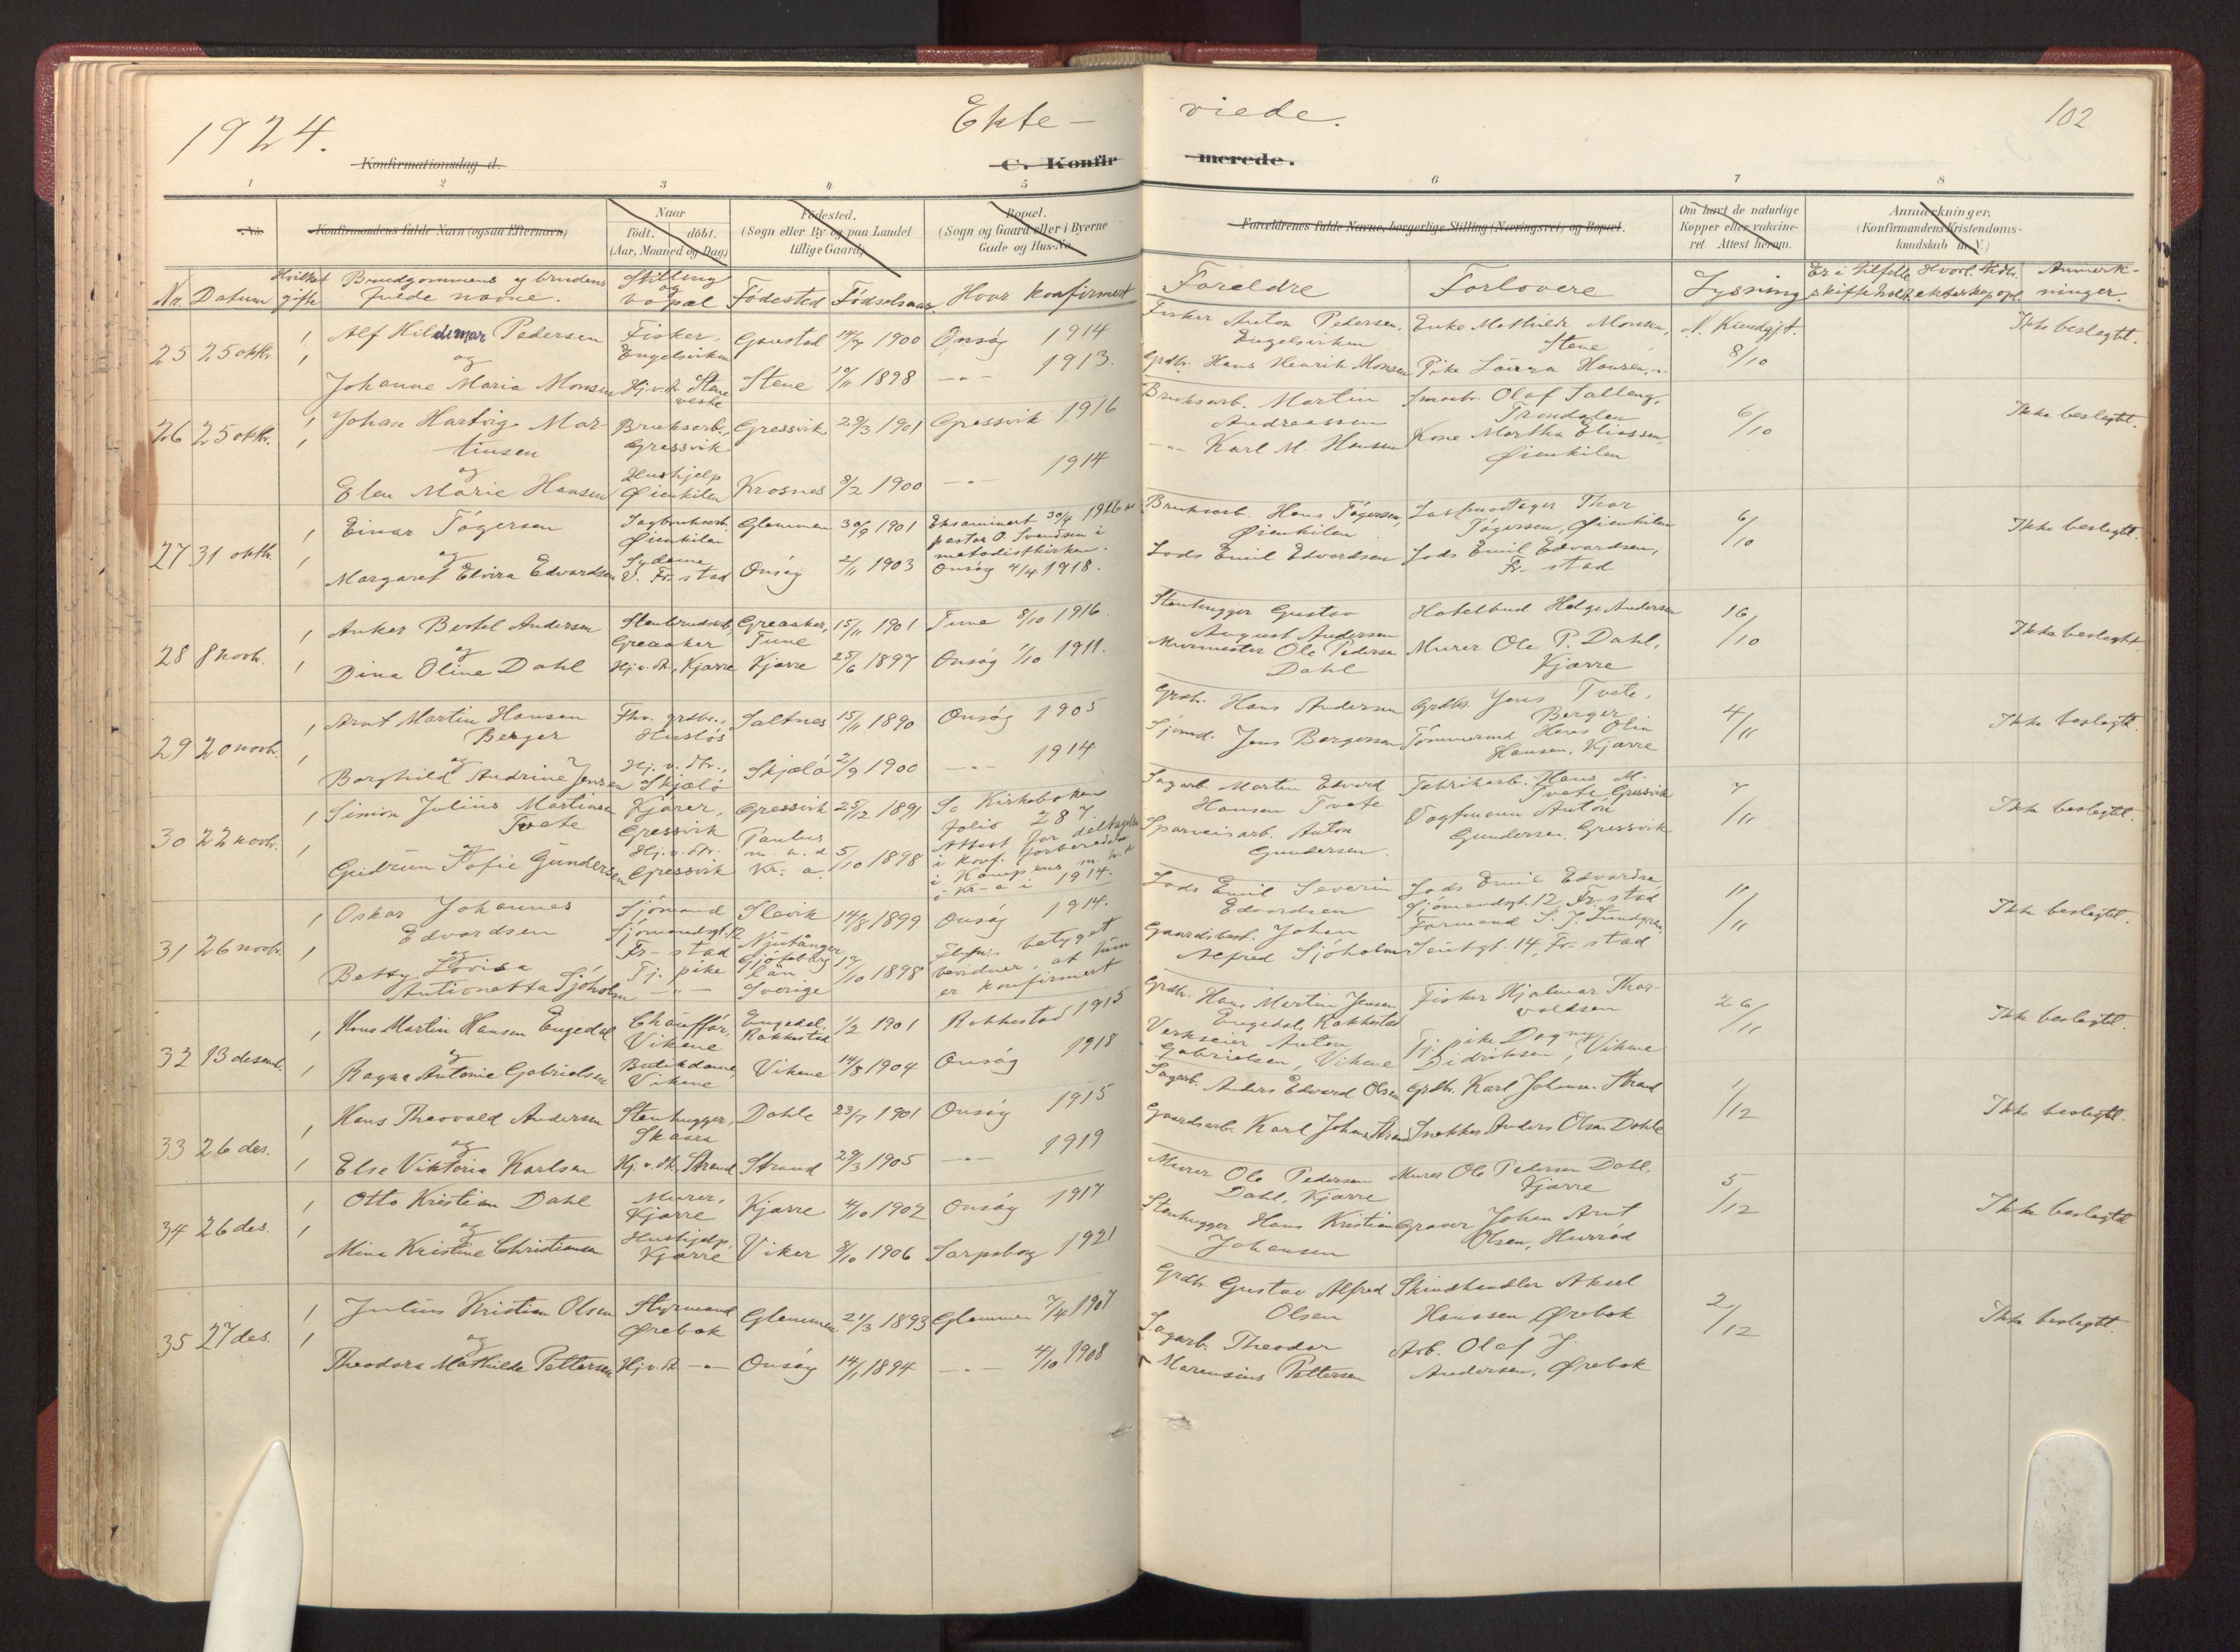 1924.
Ekte- viede.
102
Konfirmationsdag d.
C. Konfirmerede.
1 2 3 4 5 6 7 8
No. Konfirmandens fulde Navn (ogsaa Efternavn)
Naar født. døbt. (Aar, Maaned og Dag)
Fødested. (Sogn eller By og paa Landet tillige Gaard)
Bopæl. (Sogn og Gaard eller i Byerne Gade og Hus-No.)
Forældrenes fulde Navne, borgerlige Stilling (Næringsvei) og Bopæl.
Om havt de naturlige Kopper eller vaccineret. Attest herom.
Anmærkninger. (Konfirmandens Kristendomskundskab m. V.)
Nr. Datum Hvilket gifte Brudgommens og brudens fulde navne. Stilling og bopæl Födested Födselsaar Hvor konfirmert
Foreldre Forlovere Lysning Anmerkninger.
25 25 oktbr. 1 Alf Hildemar Pedersen Fisker, Engelsviken Gaustad 1900 Onsöy 1914
og
1 Johanne Maria Monsen Hj. v. dr. Stene vestre Stene 1898 -"- 1913.
Fisker Anton Pedersen, Engelsviken
Enke Mathilde Monsen, Stene
N. Kundgjt. 8/10
Ikke beslegtet.
Grdbr. Hans Henrik Monsen
Pike Laura Hansen, -"-
26 25 oktbr. 1 Johan Hartvig Martinsen Bruksarb., Gressvik Gressvik 29/3 1901 Gressvik 1916
og
1 Elen Marie Hansen Hushjelp Øienkilen Krosnes 8/2 1900 -"- 1914
Bruksarb. Martin Andreassen
Smaabr. Olaf Salleng, Trondalen
6/10
Ikke beslegtet.
-"- Karl M. Hansen
Kone Martha Eliassen, Øienkilen
27 31 oktbr. 1 Einar Tögersen Sagbruksarb. Øienkilen Glemmen 30/9 1901 Eksaminert 30/4 1916 av pastor O. Svendsen i metodistkirken.
og
1 Margaret Elvira Edvardsen Sydame V. Fr-stad Onsöy 2/11 1903 Onsöy 4/4 1918.
Bruksarb. Hans Tögersen, Øienkilen
Thor Tögersen, Øienkilen
6/10
Ikke beslegtet.
Lods Emil Edvardsen
Lods Emil Edvardsen, Fr-stad
28 8 novbr. 1 Anker Bertel Andersen Stenbruksarb., Greaaker Greaaker, Tune 15/11 1901 Tune 8/10 1916.
og
1 Dina Oline Dahl Hj. v. dr., Kjærre Kjærre 25/6 1897 Onsöy 1/10 1911.
Stenhugger Gustav August Andersen
Hotelbud Helge Andersen
16/10
Ikke beslegtet.
Murmester Ole Pedersen Dahl
Murer Ole P. Dahl, Kjærre
29 20 novbr. 1 Arnt Martin Hansen Berger Fhv. grdbr., Huslös Saltnes 15/11 1890 Onsöy 1905
og
1 Borghild Andrine Jensen Hj. v. dr., Skjælö Skjælö 2/9 1900 -"- 1914
Grdbr. Hans Andersen
Grdbr. Jens Tvete, Berger
4/11
Ikke beslegtet.
Sjömd. Jens Bergersen
Tömmermd Hans Olin Hansen, Kjærre
30 22 novbr. 1 Simon Julius Martinsen Tvete Kjörer, Gressvik Gressvik 25/12 1891 Se Kirkeboken folio 287
og
1 Gudrun Sofie Gundersen Hj. v. dr. Gressvik Paulus m. h. d. Kr-a. 5/10 1898 Attest for deltagelse i konf. forberedelse i Kampens m. h. i Kr-a i 1914.
Sagarb. Martin Edvard Hansen Tvete
Fabrikarb. Hans M. Tvete, Gressvik
7/11
Ikke beslegtet.
Sporveisarb. Anton Gundersen
Vagtmann Anton Gundersen, Gressvik
31 26 novbr. 1 Oskar Johannes Edvardsen Sjömand Sjömandsgt. 12 Fr-stad Slevik 14/8 1899 Onsöy 1914.
1 Betty Lovisa Antionetta Sjöholm Tj. pike -"- Njutånger Gjöteborg län Sverige 12/10 1898 betyget bevidner, at hun er konfirmert
Lods Emil Severin Edvardsen
Lods Emil Edvardsen Sjömandsgt. 12, Fr-stad
11/11
Ikke beslegtet.
Gaardsbest. Johan Alfred Sjöholm
Formand S. J. Lundgren, 14, Fr-stad
32 13 desemb. 1 Hans Martin Hansen Engedal Chauffør, Vikene Engedal, Rakkestad 1/2 1901 Rakkestad 1915
og
1 Ragna Antonie Gabrielsen Butikdame, Vikene Vikene 14/8 1904 Onsöy 1918
Grdbr. Hans Martin Jensen Engedal, Rakkestad
Fisker Hjalmar Thorvaldsen
26/11
Ikke beslegtet.
Verkseier Anton Gabrielsen, Vikene
Tj. pike Dagny Didriksen, Vikene
33 26 des. 1 Hans Theovald Andersen Stenhugger, Skaara Dahle 23/7 1901 Onsöy 1915
og
1 Else Viktoria Karlsen Hj. v. dr. Strand Strand 29/3 1905 -"- 1919
Sagarb. Anders Edvard Olsen
Grdbr. Karl Johans. Strand
1/12
Ikke beslegtet.
Gaardsarb. Karl Johans. Strand
Snekker Anders Olsen Dahle
34 26 des. 1 Otto Kristian Dahl Murer, Kjærre Kjærre 4/10 1902 Onsöy 1917
og
1 Mina Kristine Christiansen Hushjelp, Kjærre Viker 8/10 1906 Sarpsborg 1921
Murer Ole Pedersen Dahl, Kjærre
Murer Ole Pedersen Dahl, Kjærre
5/12
Ikke beslegtet
Stenhugger Hans Kristian Johansen
Graver Johan Arnt Olsen, Hurröd
35 27 des. 1 Julius Kristian Olsen Styrmand Ørebok Glemmen 21/3 1893 Glemmen 7/4 1907
og
1 Theodora Mathilde Pettersen Hj. v. dr. -"- Onsöy 14/1 1894 -"- 4/10 1908
Grdbr. Gustav Alfred Olsen
Skindhandler Aksel Hanssen Ørebok
2/12
Ikke beslegtet.
Sagarb. Theodor Marensius Pettersen
Arb. Olaf J. Andersen, Ørebok